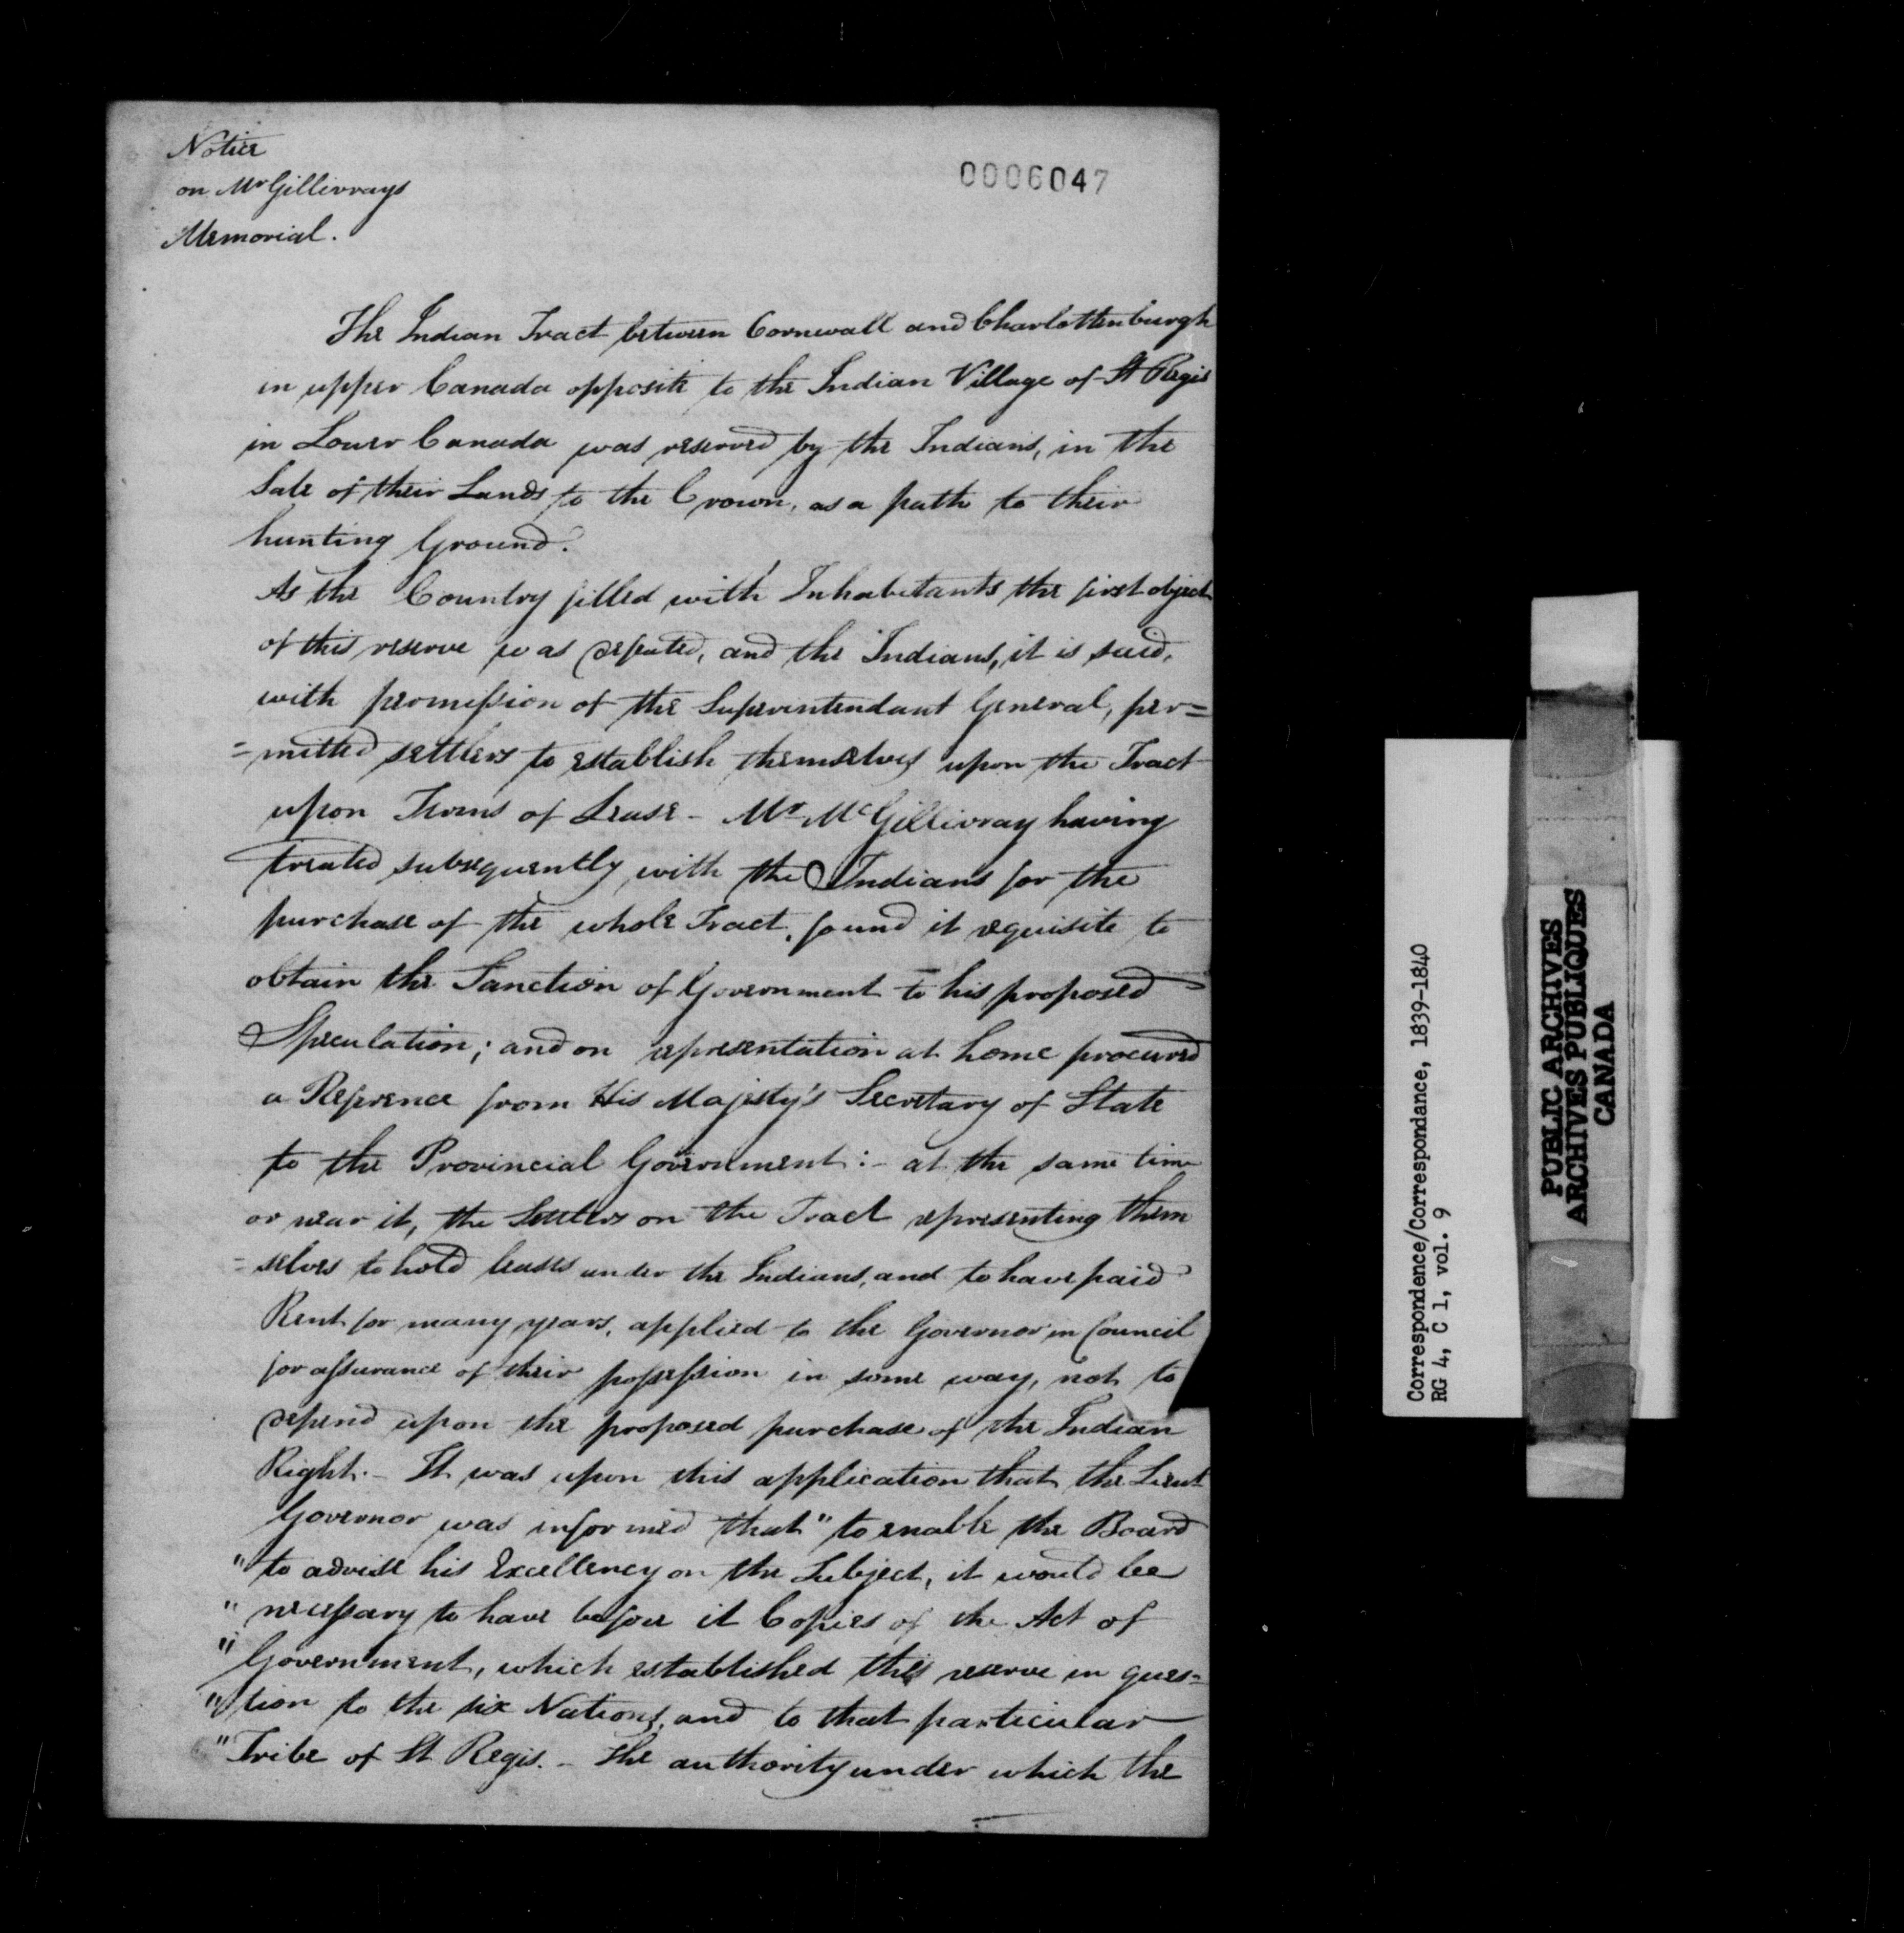 Notice
on McGillivrays
Memorial.
0006047
The Indian Tract between Cornwall and Charlottenburgh
in upper Canada opposite to the Indian Village of St Regis
in Lower Canada was reserved by the Indians, in the
Sale of their Lands to the Crown, as a path to their
hunting Ground.
As the Country filled with Inhabitants the first object
of this reserve was defeated, and the Indians, it is said,
with permission of the Superintendant General, per=
=mitted settlers to establish themselves upon the Tract
upon Terms of Lease - Mr McGillivray having
treated subsequently with the Indians for the
purchase of the whole Tract, found it requisite to
obtain the Sanction of Government to his proposed
Speculation; and on representation at home procured
a Reference from His Majesty's Secretary of State
to the Provincial Government:- at the same time
or near it, the Settlers on the Tract representing them
=selves to hold leases under the Indians, and to have paid
Rent for many years, applied to the Governor in Council
for assurance of their possession in some way, not to
depend upon the proposed purchase of the Indian
Right.- It was upon this application that the Lieut
Governor was informed that "to enable the Board
"to advise his Excellency on the Subject, it would be
"necessary to have before it Copies of the Act of
"Government, which established this reserve in ques=
"tion to the six Nations, and to that particular
"Tribe of St Regis. - The authority under which the
Correspondence/Correspondance, 1839-1840
RG 4, C 1, vol. 9
PUBLIC ARCHIVES
ARCHIVES PUBLIQUES
CANADA